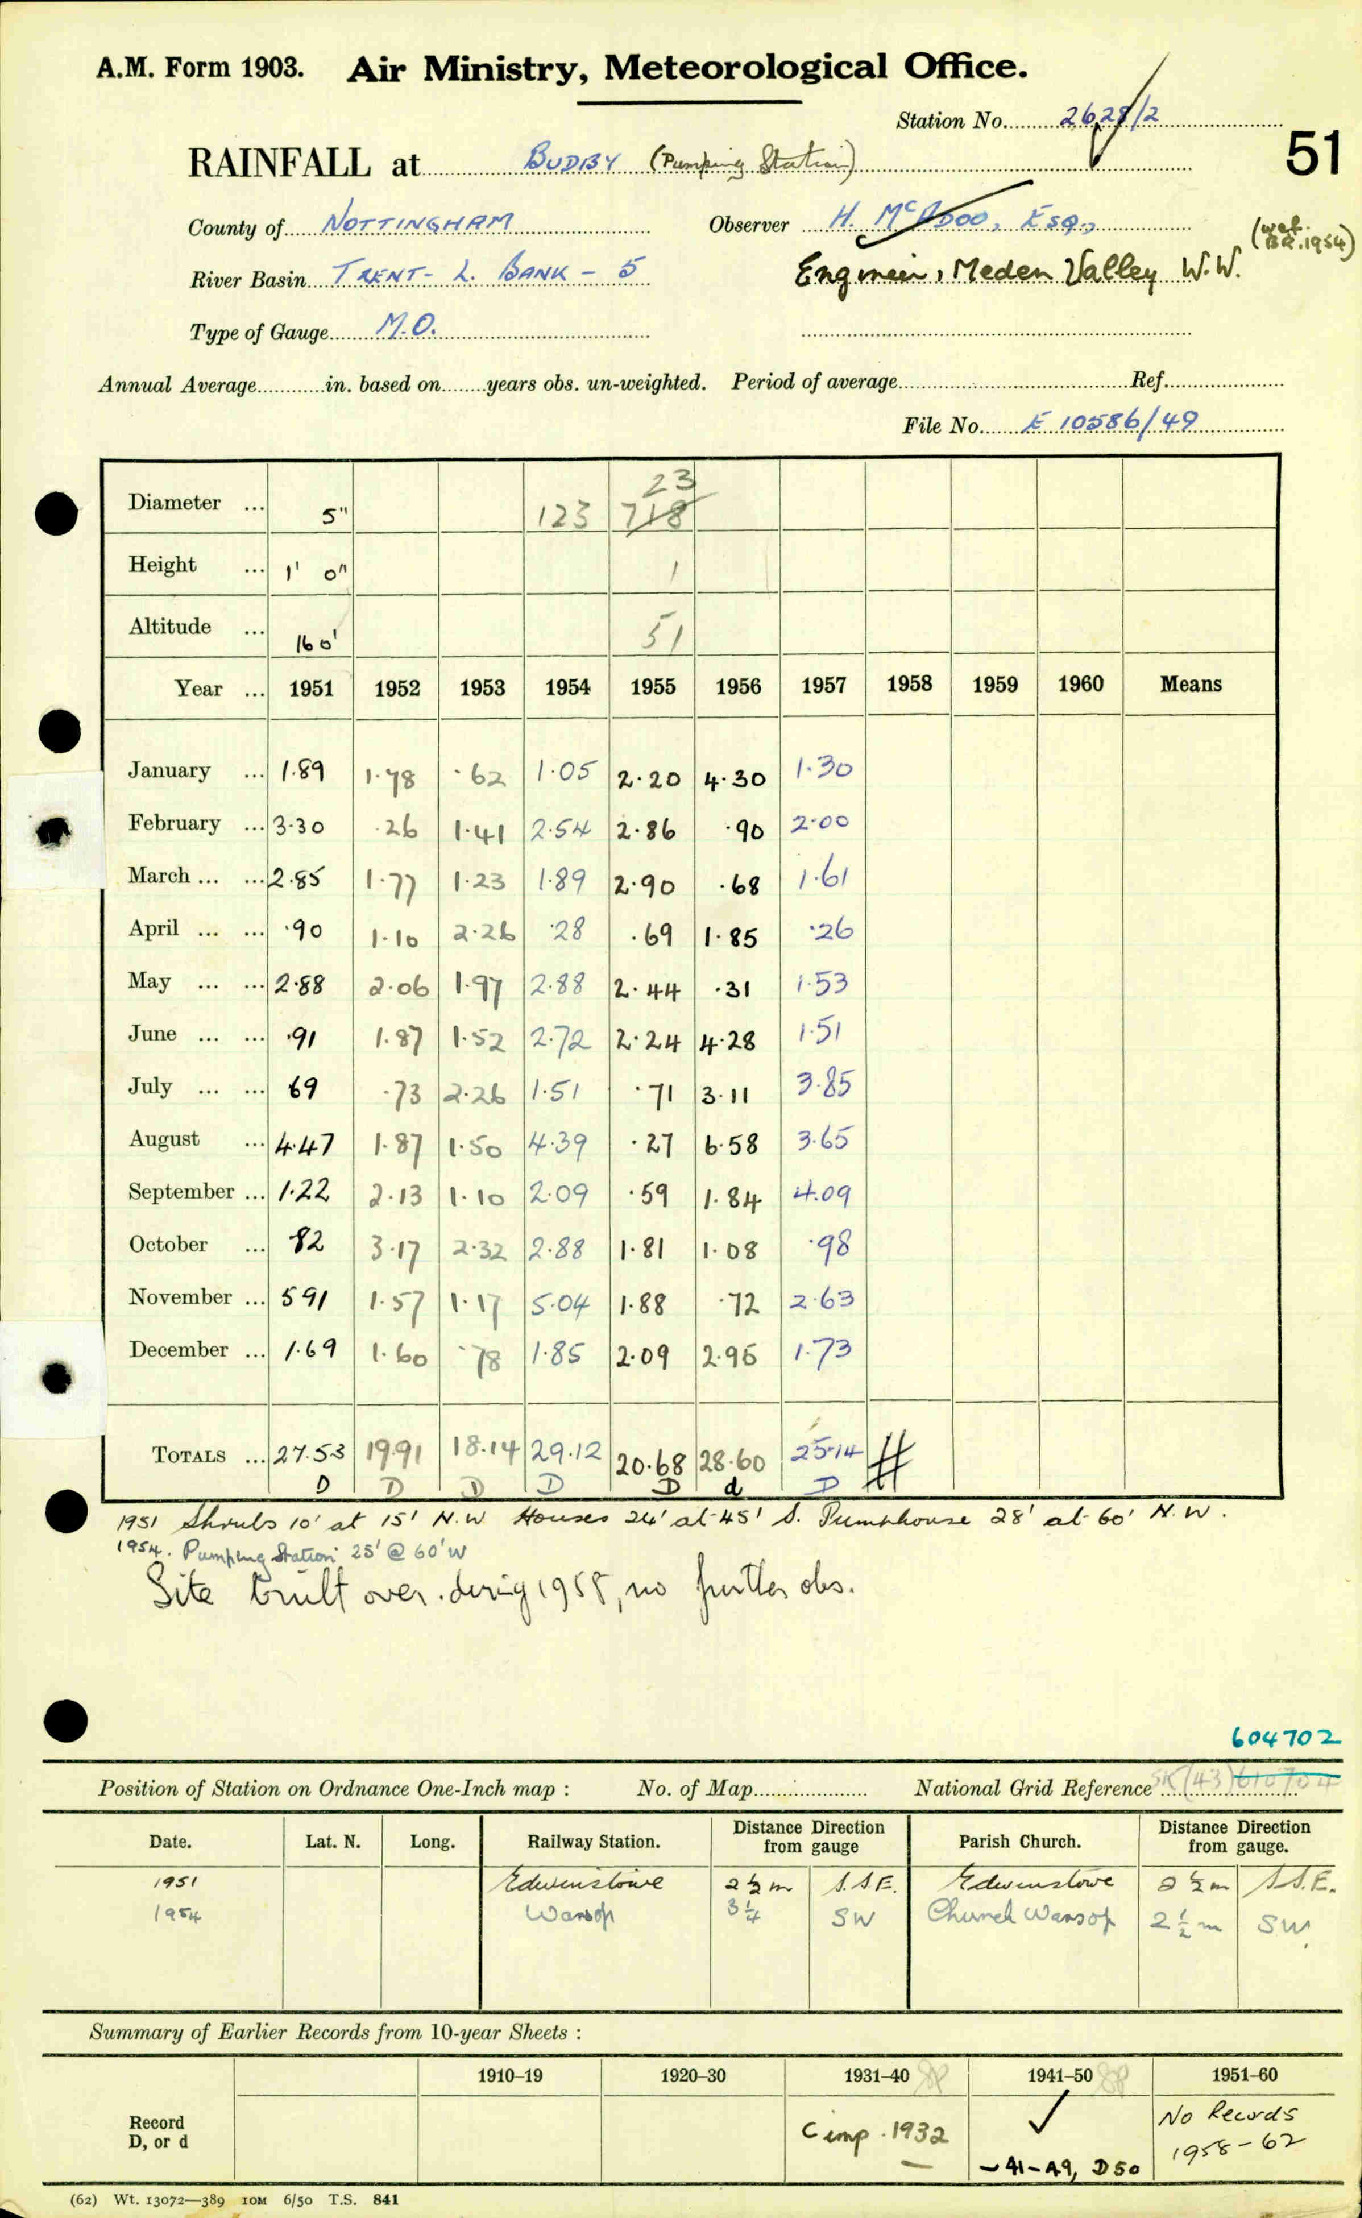 A.M. Form 1903. Air Ministry, Meteorological Office.
Station No. 2628/2
51
RAINFALL at BUDBY (Pumping Station)
County of NOTTINGHAM Observer H. McADOO, ESQ.,
(wef. 1954)
River Basin TRENT - L. BANK - 5 Engineer, Meden Valley W.W.
Type of Gauge M.O.
Annual Average in. based on years obs. un-weighted. Period of average Ref.
File No. E 10586/49
23
Diameter ... 5" 123 718
Height ... 1' 0" 1
Altitude ... 160' 51
Year ... 1951 1952 1953 1954 1955 1956 1957 1958 1959 1960 Means
January ... 1.89 1.78 .62 1.05 2.20 4.30 1.30
February ... 3.30 .26 1.41 2.54 2.86 .90 2.00
March ... ... 2.85 1.77 1.23 1.89 2.90 .68 1.61
April ... ... .90 1.10 2.26 .28 .69 1.85 .26
May ... ... 2.88 2.06 1.97 2.88 2.44 .31 1.53
June ... ... .91 1.87 1.52 2.72 2.24 4.28 1.51
July ... ... 69 .73 2.26 1.51 .71 3.11 3.85
August ... 4.47 1.87 1.50 4.39 .27 6.58 3.65
September ... 1.22 2.13 1.10 2.09 .59 1.84 4.09
October ... 82 3.17 2.32 2.88 1.81 1.08 .98
November ... 5 91 1.57 1.17 5.04 1.88 .72 2.63
December ... 1.69 1.60 .78 1.85 2.09 2.95 1.73
TOTALS ... 27.53 19.91 18.14 29.12 20.68 28.60 25.14 #
D D D D D d D
1951 Shrubs 10' at 15' N.W Houses 24' at 45' S. Pumphouse 28' at 60' N.W.
1954. Pumping Station 25' @ 60' W
Site built over during 1958, no further obs.
604702
Position of Station on Ordnance One-Inch map : No. of Map National Grid Reference SK(43)610704
Date. Lat. N. Long. Railway Station. Distance Direction from gauge Parish Church. Distance Direction from gauge.
1951 Edwinstowe 2½m S.S.E. Edwinstowe 2½m S.S.E.
1954 Warsop 3¼ SW Church Warsop 2½m SW.
Summary of Earlier Records from 10-year Sheets :
1910–19 1920–30 1931–40 1941–50 1951–60
Record D, or d Comp. 1932 ✓ No Records
1958-62
- 41-49, D50
(62) Wt. 13072—389 10M 6/50 T.S. 841